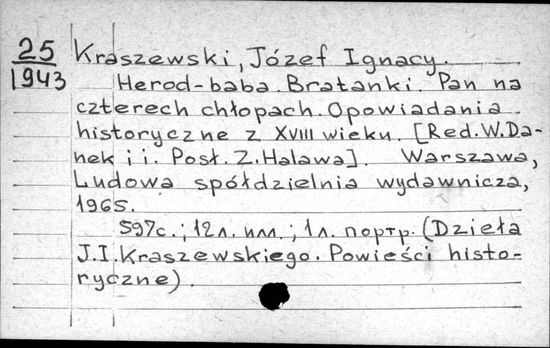 25
1943
Kraszewski, Józef Ignacy.
Herod-baba. Bratanki. Pan na
czterech chłopach. Opowiadania
historyczne z XVIII wieku. [Red. W. Da-
nek i i. Posł. Z. Halawa]. Warszawa,
Ludowa spółdzielnia wydawnicza,
1965.
597с.; 12л. илл.; 1л. портр. (Dzieła
J.I. Kraszewskiego. Powieści histo-
ryczne).